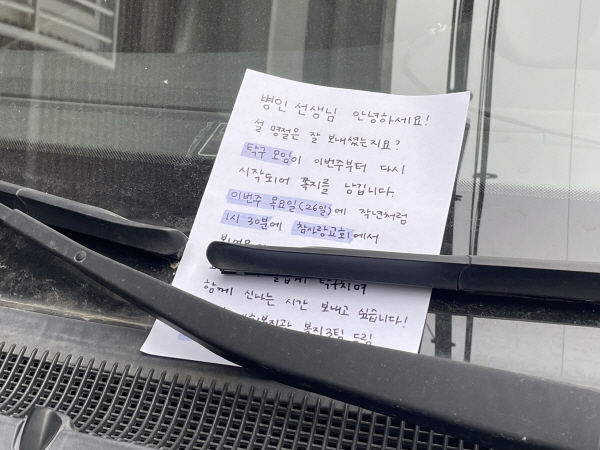 병인 선생님 안녕하세요!
설 명절은 잘 보내셨는지요?
탁구 모임이 이번주부터 다시
시작되어 쪽지를 남깁니다.
이번주 목요일(26일)에 작년처럼
1시 30분에 참사랑교회에서
탁구치며
함께 신나는 시간 보내고 싶습니다!
복지3팀 드림